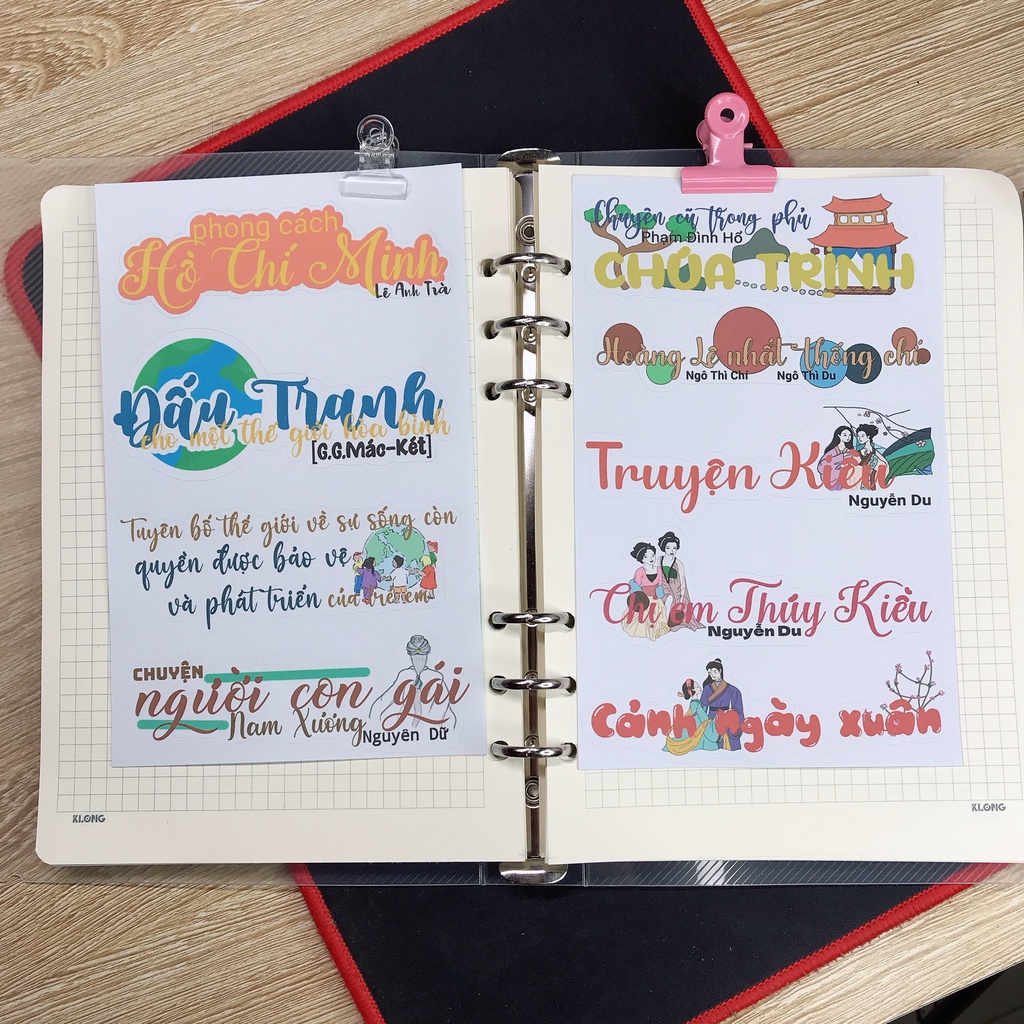 phong cách
Hồ Chí Minh
Lê Anh Trà
Đấu Tranh
cho một thế giới hòa bình
[G.G.Mác-Két]
Tuyên bố thế giới về sự sống còn
quyền được bảo vệ
và phát triển của trẻ em
CHUYỆN
người con gái
Nam Xương
Nguyễn Dữ
KLONG
Chuyện cũ trong phủ
Phạm Đình Hổ
CHÚA TRỊNH
Hoàng Lê nhất thống chí
Ngô Thì Chí Ngô Thì Du
Truyện Kiều
Nguyễn Du
Chị em Thúy Kiều
Nguyễn Du
Cảnh ngày xuân
KLONG